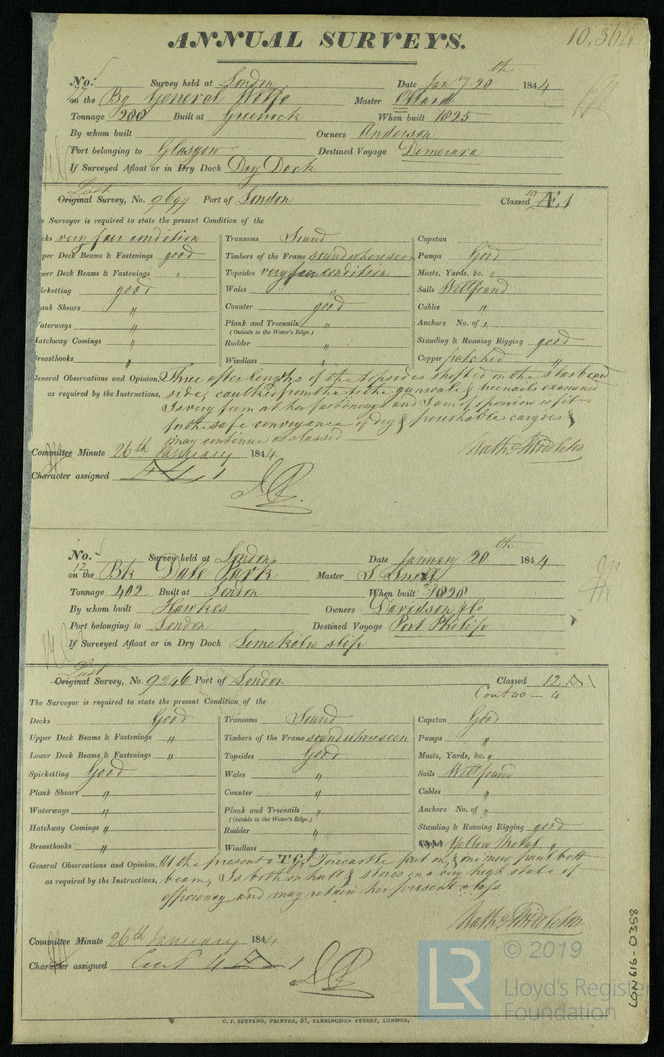 ANNUAL SURVEYS. 10,364
No. Survey held at London Date Jany 20th 1844
on the Bg General Wolfe Master
Tonnage 208 Built at Greenock When built 1825
By whom built Owners Anderson
Port belonging to Glasgow Destined Voyage Demerara
If Surveyed Afloat or in Dry Dock Dry Dock
Last
Original Survey, No. 9699 Port of London Classed 10 Æ 1
Surveyor is required to state the present Condition of the
very fair condition Transoms Sound Capstan
per Deck Beams & Fastenings good Timbers of the Frame sound where seen Pumps Good
wer Deck Beams & Fastenings " Topsides very fair condition Masts, Yards, &c. "
irketting good Wales " Sails Well found
ank Shears " Counter good Cables "
aterways " Plank and Treenails " Anchors No. of
(Outside to the Water's Edge.)
atchway Comings " Rudder " Standing & Running Rigging good
reasthooks " Windlass " Copper patched "
General Observations and Opinion, Three after lengths of the topsides shifted on the starboard
as required by the Instructions, side, caulked from the to the gunwale & treenails examined
Is very firm at her fastenings and I am of opinion is fit
for the safe conveyance of dry & perishable cargoes &
may continue as classed
Committee Minute 26th January 1844
Character assigned
No. Survey held at London Date January 20th 1844
12
on the Bk Dale Park Master S Smith
Tonnage 402 Built at London When built 1828
By whom built Hawkes Owners Davidson & Co
Port belonging to London Destined Voyage Port Philip
If Surveyed Afloat or in Dry Dock Limekiln slip
Last
Original Survey, No. 9246 Port of London Classed 12 A 1
Cont 40 - 4
The Surveyor is required to state the present Condition of the
Decks Good Transoms Sound Capstan Good
Upper Deck Beams & Fastenings " Timbers of the Frame sound where seen Pumps "
Lower Deck Beams & Fastenings " Topsides Good Masts, Yards, &c. "
Spirketting Good Wales " Sails Well found
Plank Shears " Counter " Cables "
Waterways " Plank and Treenails " Anchors No. of "
(Outside to the Water's Edge.)
Hatchway Comings " Rudder " Standing & Running Rigging good
Breasthooks " Windlass " Yellow Metal "
General Observations and Opinion, At the present a T.G. Forecastle put on, & one new
as required by the Instructions, beam, Is both in hull & stores in a very high state of
efficiency and may retain her present class
Committee Minute 26th January 1844
Character assigned Cont 4 A 1
C. F. SEYFANG, PRINTER, 57, FARRINGDON STREET, LONDON.
LON 619-0358
LR © 2019
Lloyd's Register
Foundation